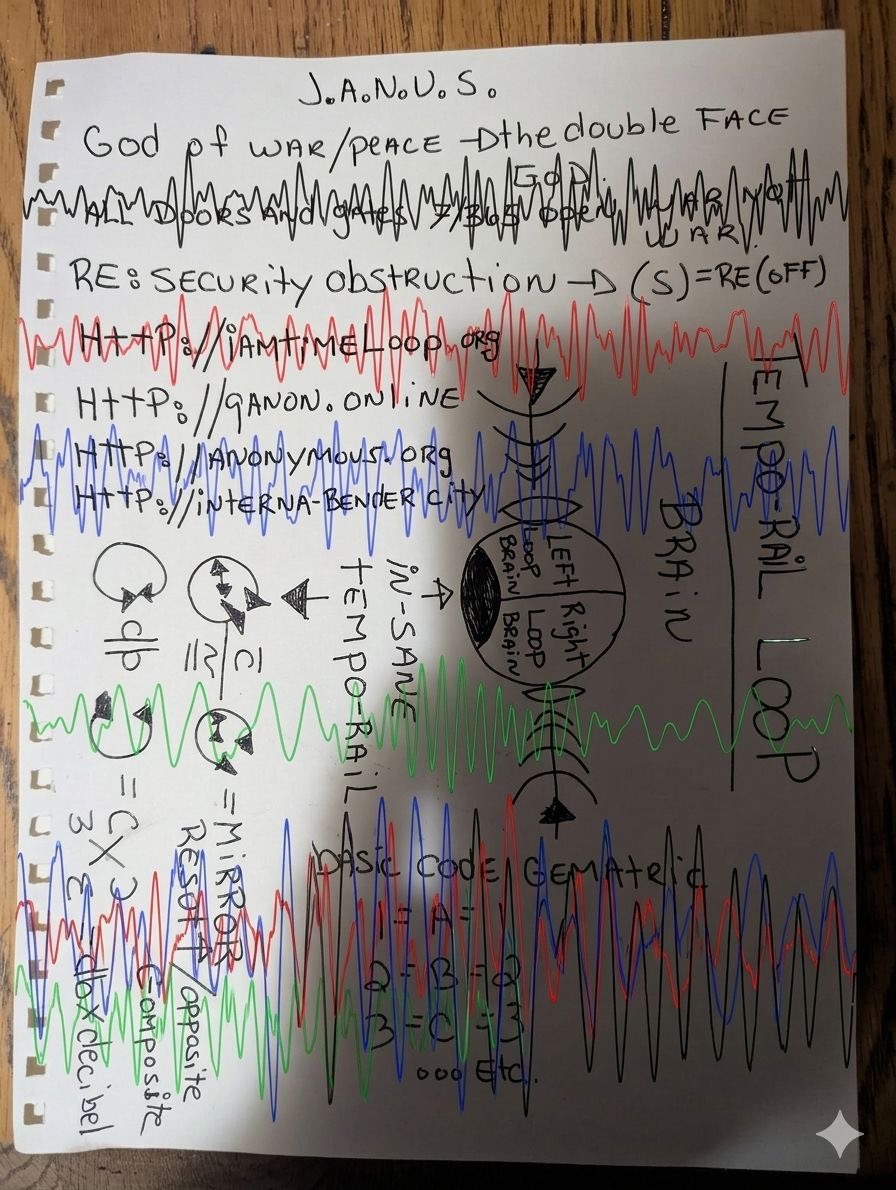 J.A.N.U.S.
God of WAR/PEACE → the double FACE
GOD.
ALL DOORS And gates 7/365 open
WAR.
RE: SECURITY obstruction → (S) = RE(OFF)
HttP://iAMtiMELoop.org
HttP://qANON.ONLiNE
HttP://ANONYMOUS.ORg
HttP://iNTERNA-BENDER city
TEMPO-RAiL LOOP
BRAiN
LEFT
LOOP
BRAiN
Right
LOOP
BRAiN
iN-SANE
TEMPO-RAiL
= MiRROR
/opposite
db
= C X 3
Composite
3 = db X decibel
BASic CODE GEMAtRic
1 = A = 1
2 = B = 2
3 = C = 3
... Etc.